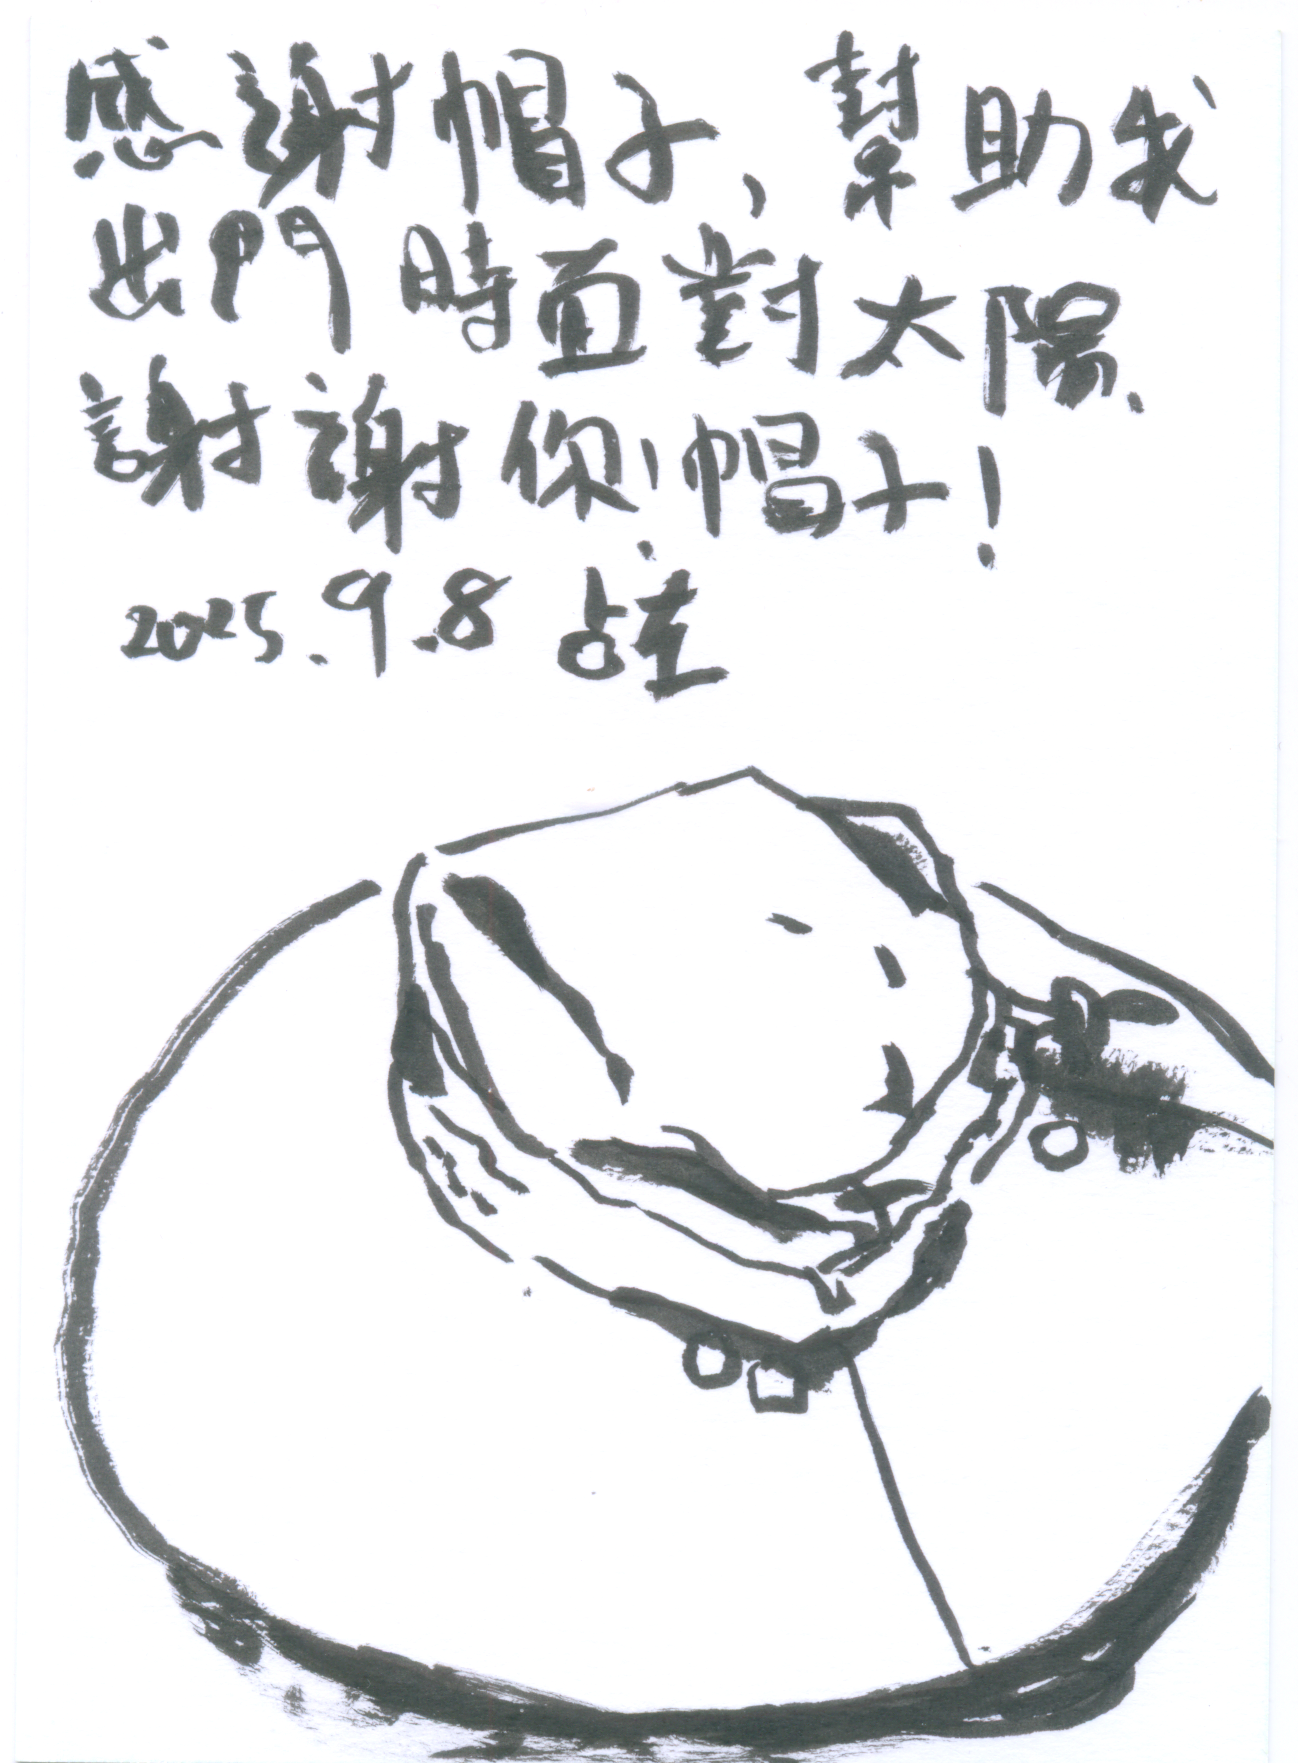 感謝帽子、幫助我
出門時面對太陽、
謝謝你！帽子！
2025.9.8